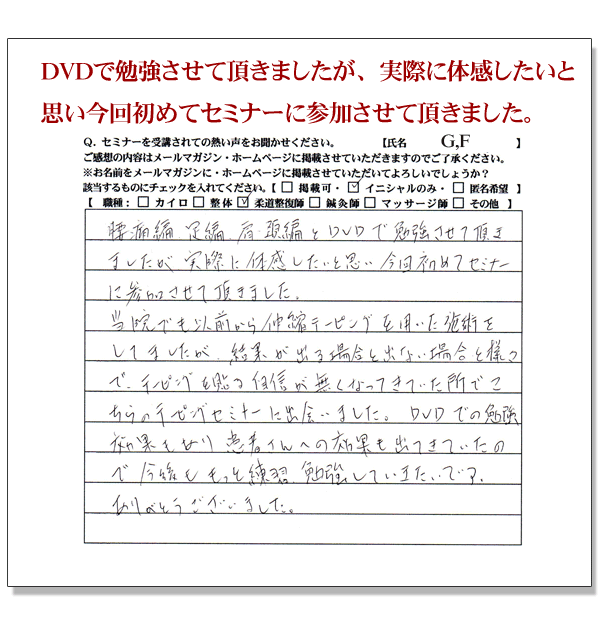 DVDで勉強させて頂きましたが、実際に体感したいと
思い今回初めてセミナーに参加させて頂きました。
Q. セミナーを受講されての熱い声をお聞かせください。 【氏名 G,F 】
ご感想の内容はメールマガジン・ホームページに掲載させていただきますのでご了承ください。
※お名前をメールマガジンに・ホームページに掲載させていただいてよろしいでしょうか？
該当するものにチェックを入れてください。【 □ 掲載可・ ☑ イニシャルのみ・ □ 匿名希望 】
【 職種： □ カイロ □ 整体 ☑ 柔道整復師 □ 鍼灸師 □ マッサージ師 □ その他 】
腰痛編、足編、肩・頚編とDVDで勉強させて頂き
ましたが、実際に体感したいと思い、今回初めてセミナー
に参加させて頂きました。
当院でも以前から伸縮テーピングを用いた施術を
してましたが、結果が出る場合と出ない場合と様々
で、テーピングを貼る自信が無くなってきていた所でこ
ちらのテーピングセミナーに出会いました。DVDでの勉強
効果もあり患者さんへの効果も出てきていたの
で今後ももっと練習、勉強していきたいです。
ありがとうございました。